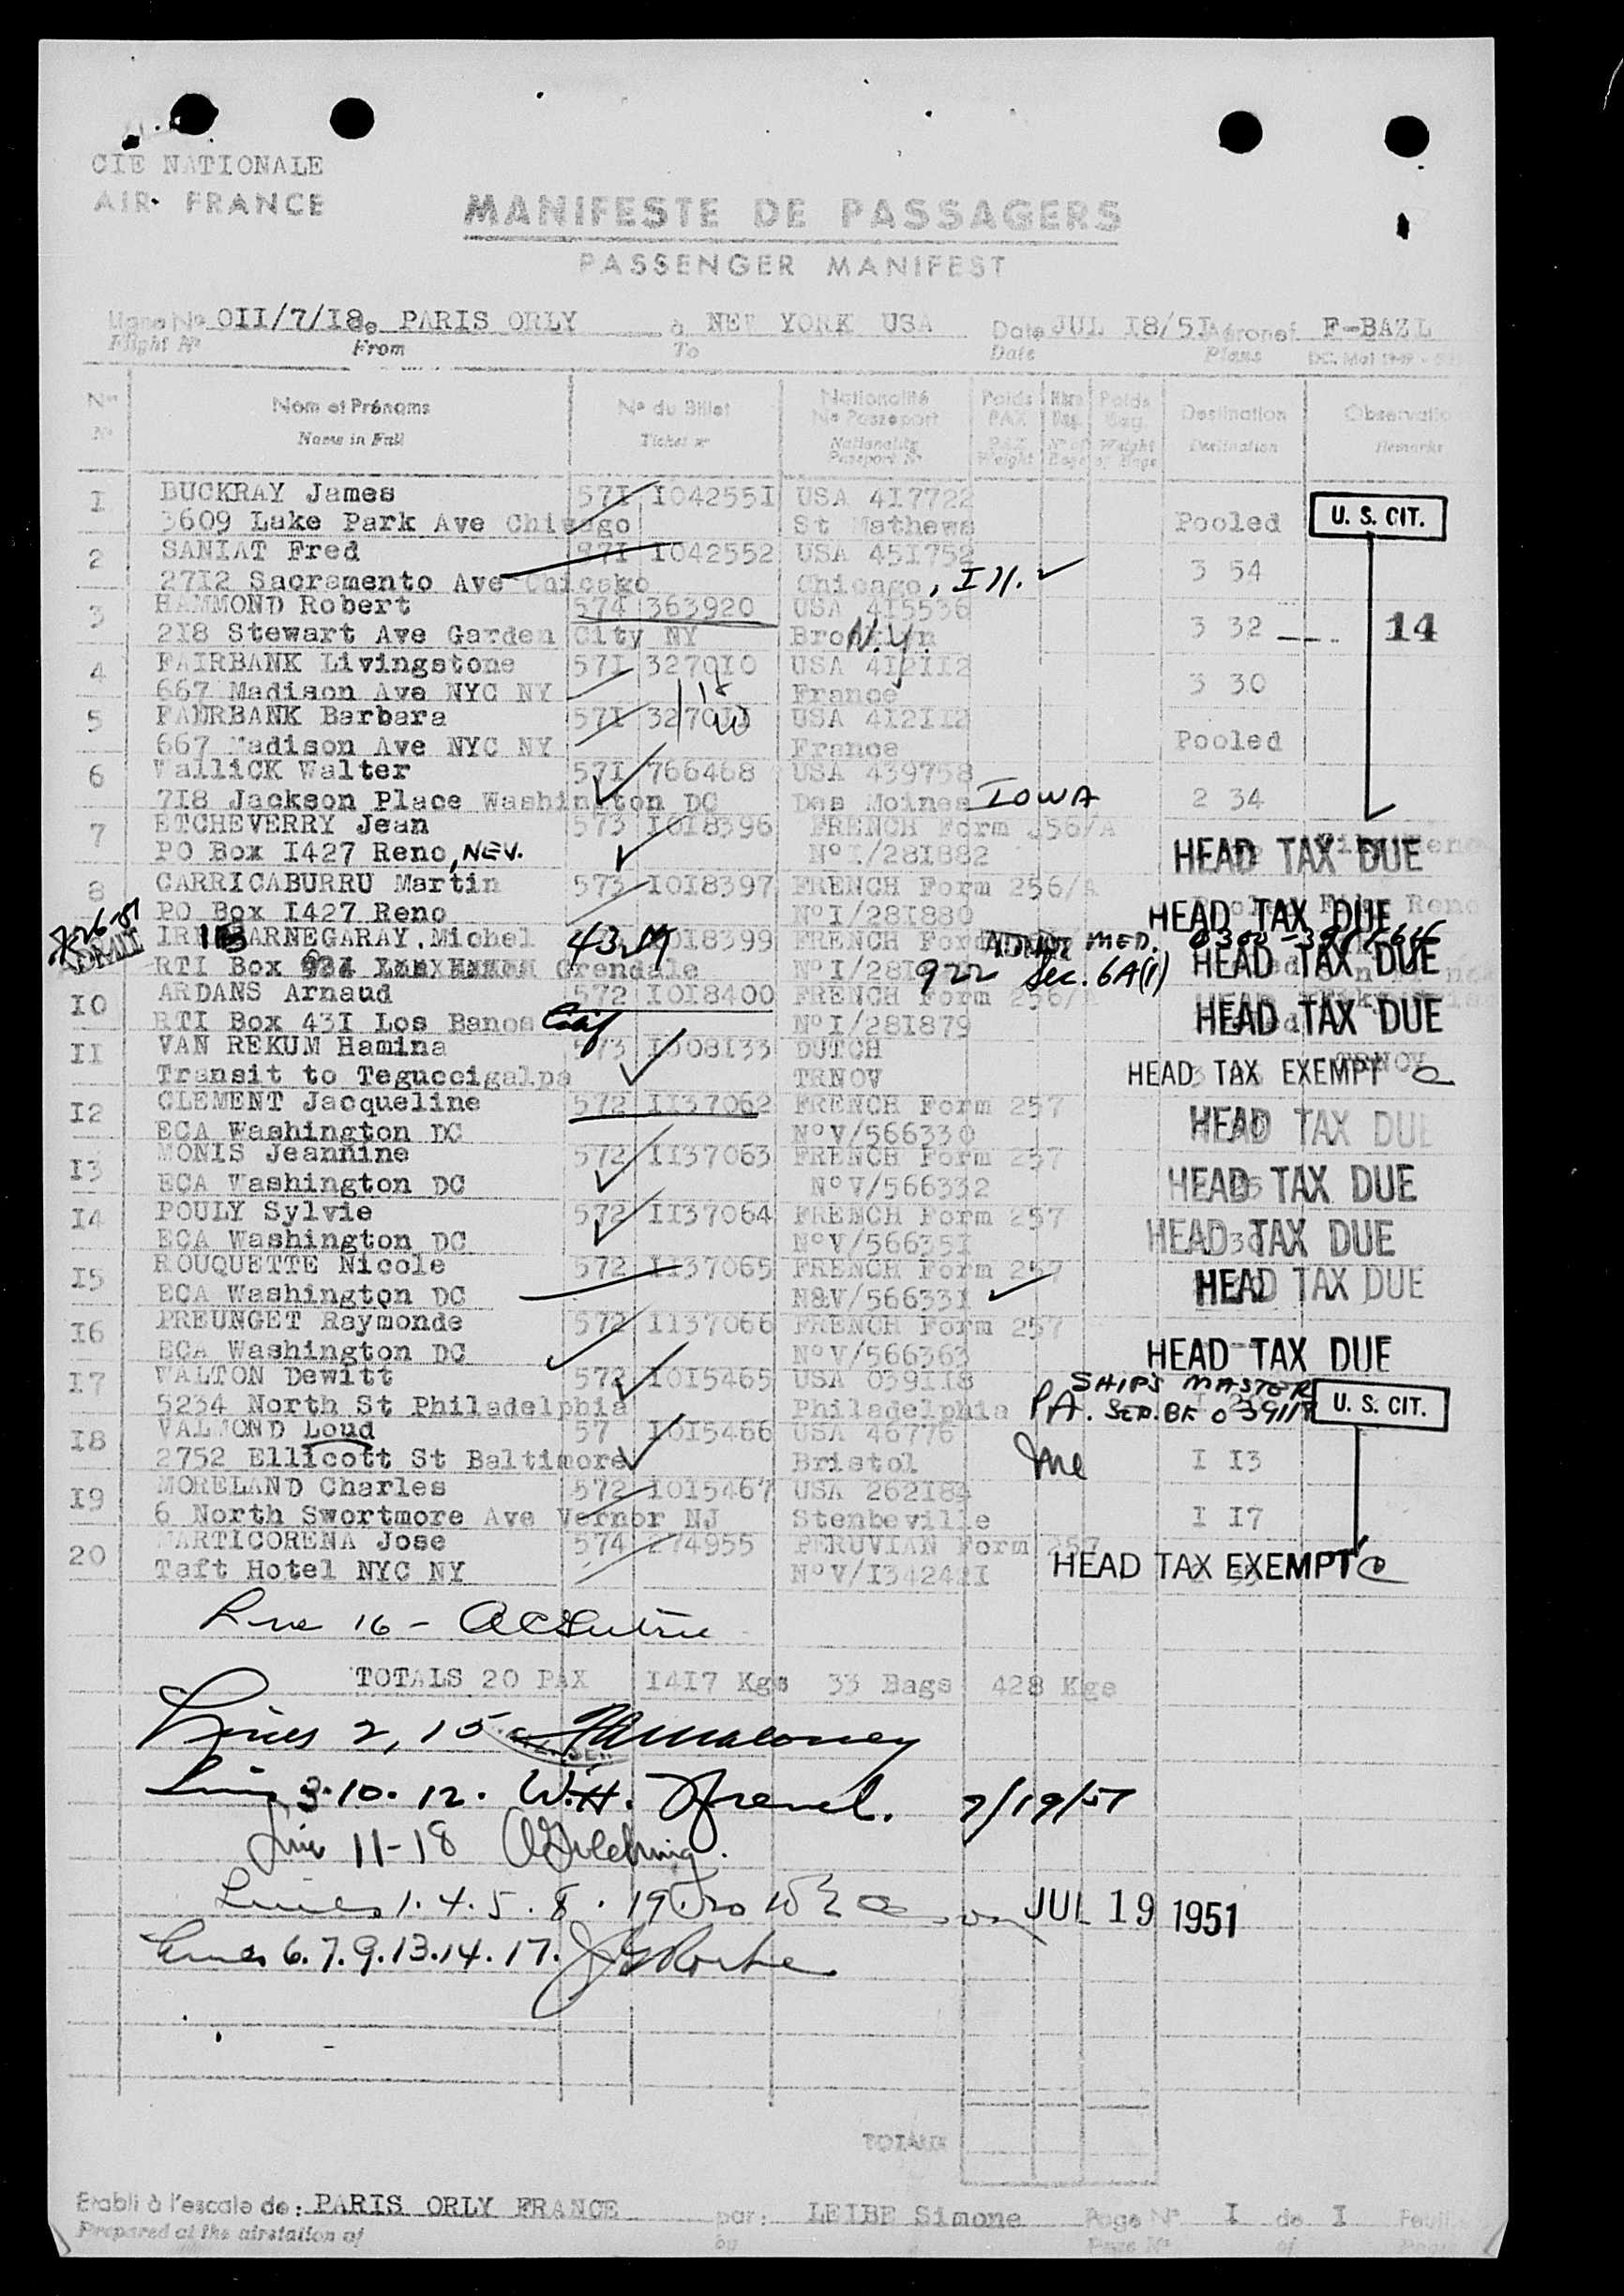 CIE NATIONALE
AIR FRANCE
MANIFESTE DE PASSAGERS
PASSENGER MANIFEST
Ligne No OII/7/I8 de PARIS ORLY à NEW YORK USA Date JUL I8/5I Aéronef F-BAZL
Flight No From To Date Plane
Nos Nom et Prénoms No du Billet Nationalité No Passeport Poids PAX Nbre Bag. Poids Bag. Destination Observatio
No Name in Full Ticket nr Nationality Passport No PAX Weight No of Bags Weight of Bags Destination Remarks
I BUCKRAY James 57I I04255I USA 4I7722
3609 Lake Park Ave Chicago St Mathews Pooled U. S. CIT.
2 SANIAT Fred 57I I042552 USA 45I752
27I2 Sacramento Ave Chicago Chicago, Ill. 3 54
3 HAMMOND Robert 574 363920 USA 4I5536
2I8 Stewart Ave Garden City NY Brooklyn N.Y. 3 32 14
4 FAIRBANK Livingstone 57I 3270I0 USA 4I2II2
667 Madison Ave NYC NY France 3 30
5 FAIRBANK Barbara 57I 3270II USA 4I2II2
667 Madison Ave NYC NY France Pooled
6 WallICK Walter 57I 766468 USA 439758
7I8 Jackson Place Washington DC Des Moines IOWA 2 34
7 ETCHEVERRY Jean 573 I0I8396 FRENCH Form 256/A
PO Box I427 Reno, NEV. No I/28I882 HEAD TAX DUE
8 GARRICABURRU Martin 573 I0I8397 FRENCH Form 256/A
PO Box I427 Reno No I/28I880 HEAD TAX DUE
7-26-51 ADMIT ARNEGARAY Michel 43 I0I8399 FRENCH Form ADMIT MED. 0300-
RTI Box Grendale No I/28I 922 Sec. 6A(1) HEAD TAX DUE
I0 ARDANS Arnaud 572 I0I8400 FRENCH Form 256/A
RTI Box 43I Los Banos Calif No I/28I879 HEAD TAX DUE
II VAN REKUM Hamina 573 I008I33 DUTCH
Transit to Teguccigalpa TRNOV HEAD TAX EXEMPT
I2 CLEMENT Jacqueline 572 II37062 FRENCH Form 257
ECA Washington DC No V/566330 HEAD TAX DUE
I3 MONIS Jeannine 572 II37063 FRENCH Form 257
ECA Washington DC No V/566332 HEAD TAX DUE
I4 POULY Sylvie 572 II37064 FRENCH Form 257
ECA Washington DC No V/56635I HEAD TAX DUE
I5 ROUQUETTE Nicole 572 II37065 FRENCH Form 257
ECA Washington DC N&V/56633I HEAD TAX DUE
I6 PREUNGET Raymonde 572 II37066 FRENCH Form 257
ECA Washington DC No V/566363 HEAD TAX DUE
I7 WALTON Dewitt 572 I0I5465 USA 039II8 SHIPS MASTER
5234 North St Philadelphia Philadelphia PA. SER. BK 039118 U. S. CIT.
I8 VALMOND Loud 57 I0I5466 USA 46776
2752 Ellicott St Baltimore Bristol I I3
I9 MORELAND Charles 572 I0I5467 USA 262I84
6 North Swortmore Ave Vernor NJ Stenbeville I I7
20 MARTICORENA Jose 574 274955 PERUVIAN Form 257
Taft Hotel NYC NY No V/I34242I HEAD TAX EXEMPT
Line 16 -
TOTALS 20 PAX I4I7 Kgs 33 Bags 428 Kgs
Lines 2, 15 Maloney
Lines 3.10.12. W.H. 7/19/51
Line 11-18
Lines 1.4.5.8.19.20 JUL 19 1951
Lines 6.7.9.13.14.17.
TOTAUX
Etabli à l'escale de: PARIS ORLY FRANCE par: LEIBE Simone Page No I de I Feuil
Prepared at the airstation of by Page No of Page